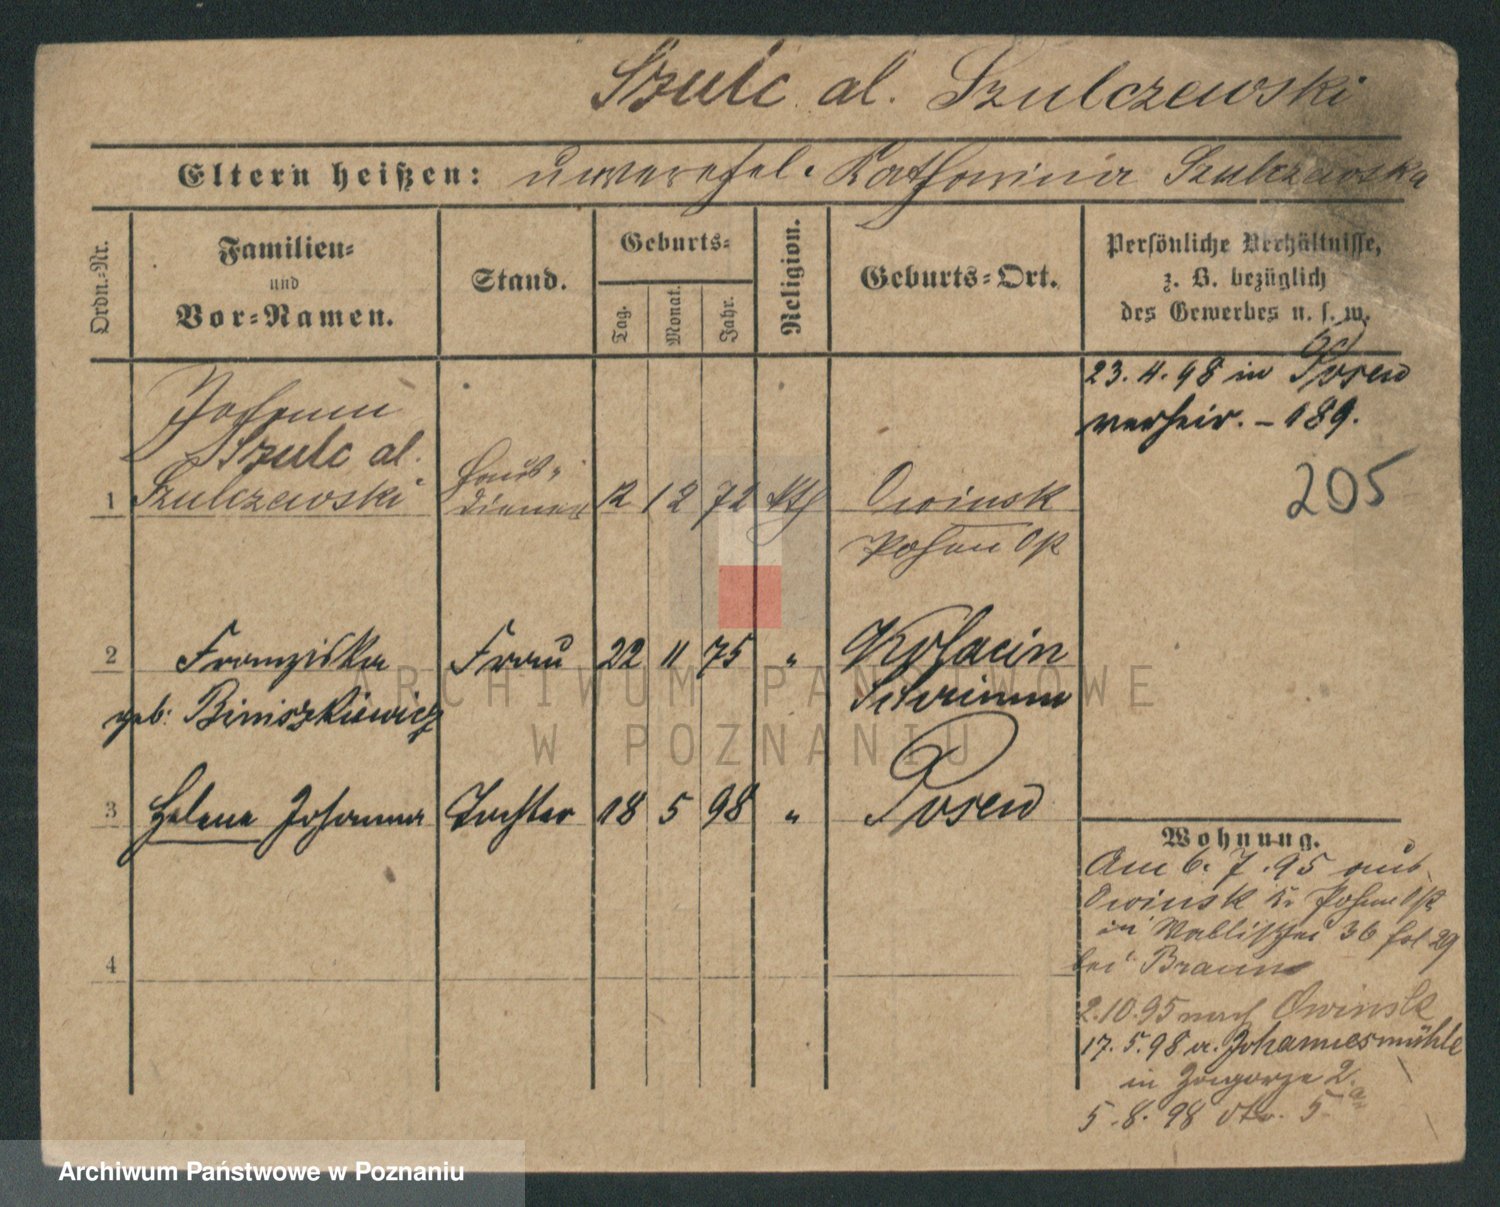 Szulc al. Szulczewski
Eltern heißen: unverehel. Katharina Szulczewska
Ordn.-Nr.
Familien-
und
Vor-Namen.
Stand.
Geburts-
Tag.
Monat.
Jahr.
Religion.
Geburts-Ort.
Persönliche Verhältnisse,
z. B. bezüglich
des Gewerbes u. s. w.
23. 4. 98 in Posen
verheir. - 189.
205
Johann
Szulc al.
1 Szulczewski Haus-
diener 12 12 72 kth Owinsk
Posen Ost
2 Franziska Frau 22 11 75 " Kosacin
geb: Biniszkiewicz Schrimm
3 Helene Johanna Tochter 18 5 98 " Posen
4
Wohnung.
Am 6. 7. 95 aus
Owinsk Kr Posen Ost
in Wallischei 36 fol 29
bei Braun
2.10.95 nach Owinsk
17. 5. 98 a. Johannesmühle
in Zagorze 2.
5. 8. 98 dto. 5a
ARCHIWUM PAŃSTWOWE
W POZNANIU
Archiwum Państwowe w Poznaniu